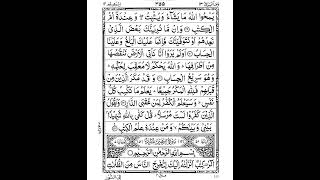 ٢٥٥
يَمْحُوا اللّٰهُ مَا يَشَآءُ وَيُثْبِتُ ۖ وَعِنْدَهٗٓ اُمُّ
الْكِتٰبِ ۝ وَاِنْ مَّا نُرِيَنَّكَ بَعْضَ الَّذِيْ
نَعِدُهُمْ اَوْ نَتَوَفَّيَنَّكَ فَاِنَّمَا عَلَيْكَ الْبَلٰغُ وَعَلَيْنَا
الْحِسَابُ ۝ اَوَلَمْ يَرَوْا اَنَّا نَاْتِي الْاَرْضَ نَنْقُصُهَا مِنْ
اَطْرَافِهَا ؕ وَاللّٰهُ يَحْكُمُ لَا مُعَقِّبَ لِحُكْمِهٖ ؕ
وَهُوَ سَرِيْعُ الْحِسَابِ ۝ وَقَدْ مَكَرَ الَّذِيْنَ مِنْ
قَبْلِهِمْ فَلِلّٰهِ الْمَكْرُ جَمِيْعًا ؕ يَعْلَمُ مَا تَكْسِبُ كُلُّ
نَفْسٍ ؕ وَسَيَعْلَمُ الْكُفّٰرُ لِمَنْ عُقْبَى الدَّارِ ۝ وَيَقُوْلُ
الَّذِيْنَ كَفَرُوْا لَسْتَ مُرْسَلًا ؕ قُلْ كَفٰى بِاللّٰهِ شَهِيْدًۢا
بَيْنِيْ وَبَيْنَكُمْ ۙ وَمَنْ عِنْدَهٗ عِلْمُ الْكِتٰبِ ۝
بِسْمِ اللّٰهِ الرَّحْمٰنِ الرَّحِيْمِ
الٓرٰ ۟ كِتٰبٌ اَنْزَلْنٰهُ اِلَيْكَ لِتُخْرِجَ النَّاسَ مِنَ الظُّلُمٰتِ